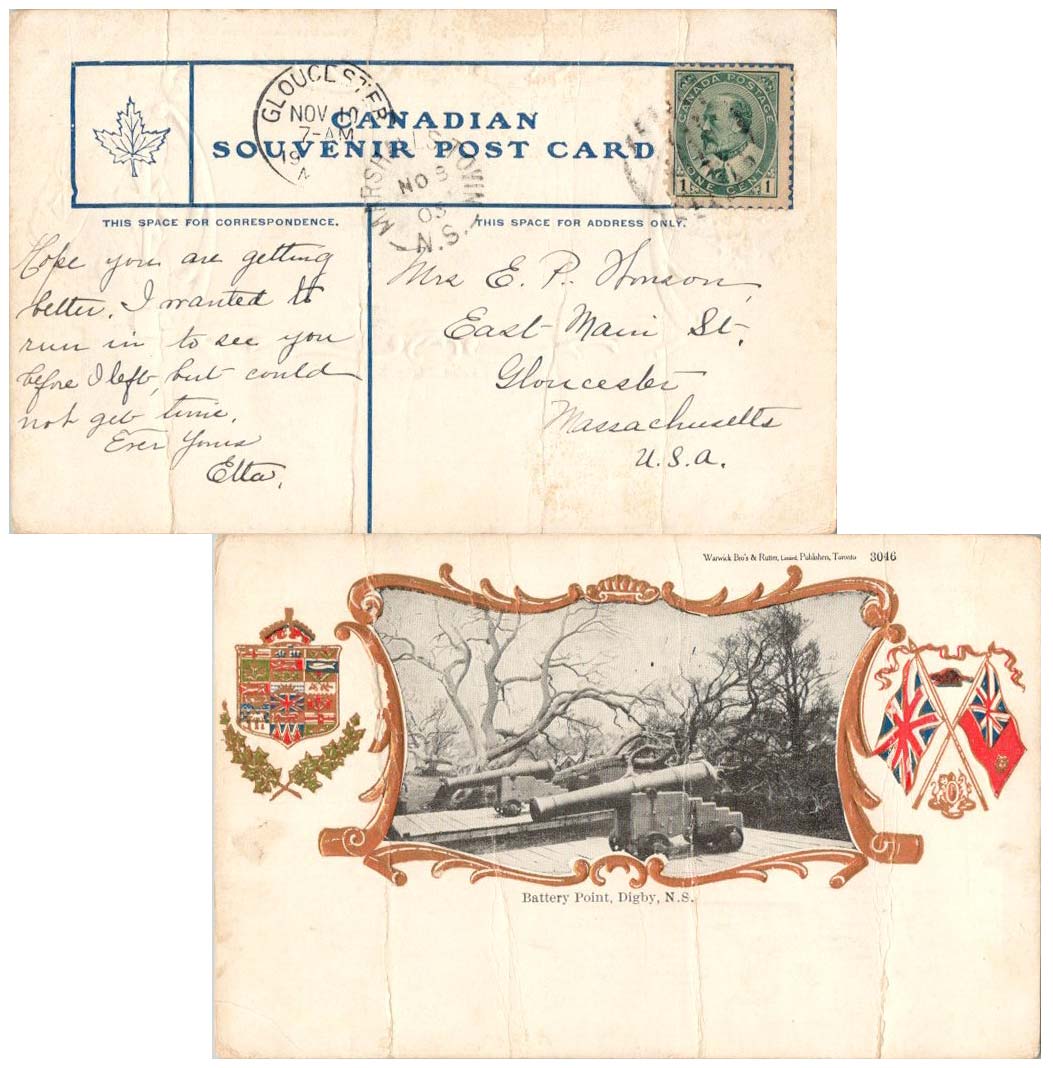 GLOUCESTER
NOV 10
7-AM
19
CANADIAN
SOUVENIR POST CARD
MARSHALLSTOWN
NO 8
03
N.S.
CANADA POSTAGE
1 ONE CENT 1
THIS SPACE FOR CORRESPONDENCE.
THIS SPACE FOR ADDRESS ONLY.
Hope you are getting
better. I wanted to
run in to see you
before I left, but could
not get time.
Ever Yours
Etta.
Mrs E. P.
East Main St.
Gloucester
Massachusetts
U.S.A.
Warwick Bro's & Rutter, Limited, Publishers, Toronto 3046
Battery Point, Digby, N.S.